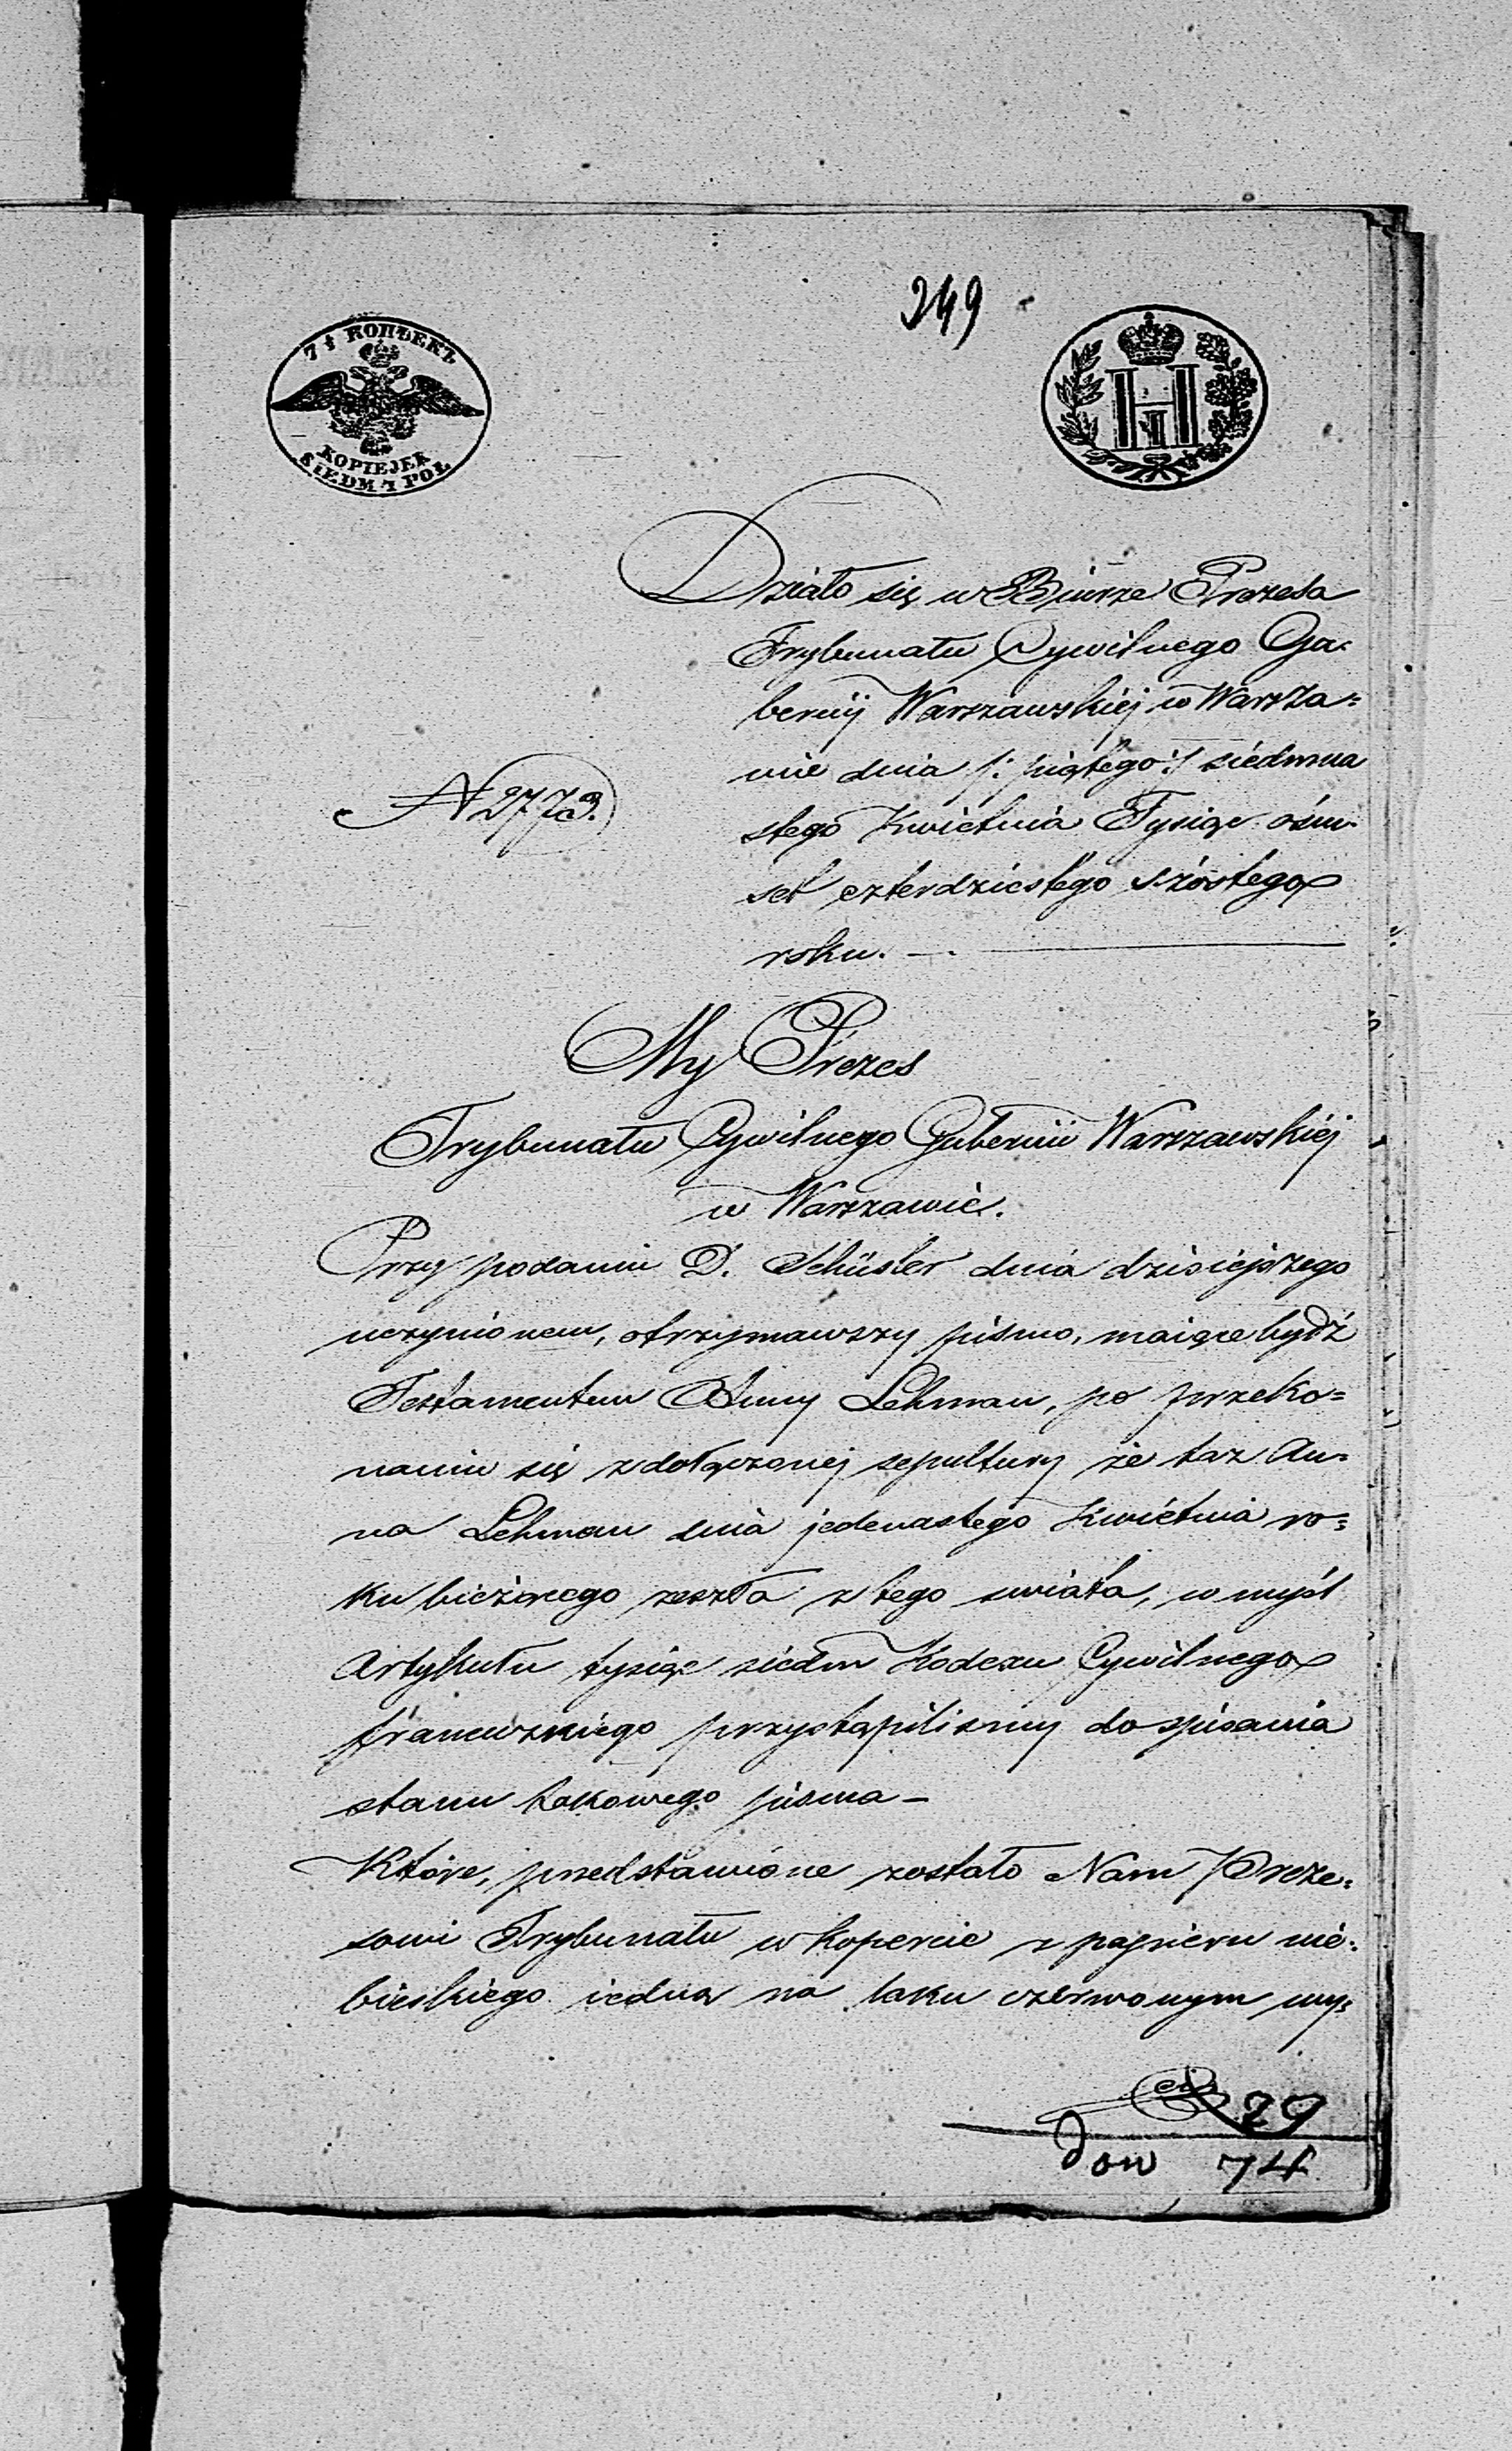 249
7½ КОПѢЕКЪ
KOPIEJEK
SIEDM I POŁ
Działo się w Biurze Prezesa
Trybunału Cywilnego Gu-
bernij Warszawskiej w Warsza=
wie dnia /: piątego :/ siedmna
stego Kwietnia Tysiąc ośm-
set czterdziestego szóstego
roku. —
N 2773.
My Prezes
Trybunału Cywilnego Gubernii Warszawskiéj
w Warszawie.
Przy podaniu D. Schüster dnia dzisiejszego
uczynionem, otrzymawszy pismo, maiące bydź
Testamentem Anny Lehman, po przeko=
naniu się z dołączonej sepultury że taż An=
na Lehman dnia jedenastego Kwietnia ro=
ku bieżącego zeszła z tego swiata, w myśl
Artykułu tysiąc siedm Kodexu Cywilnego
francuzkiego przystąpilismy do spisania
stanu takowego pisma —
Które, przedstawione zostało Nam Preze=
sowi Trybunału w kopercie z papieru nie=
bieskiego iedną na laku czerwonym wy=
29
Dow 74